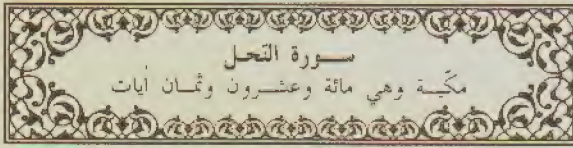 سورة النحل
مكّية وهي مائة وعشرون وثمان أيات